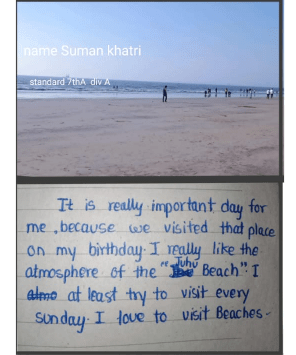 name Suman khatri
standard 7thA div A
It is really important day for
me, because we visited that place
on my birthday. I really like the
atmosphere of the "Juhu Beach". I
at least try to visit every
sunday. I love to visit Beaches.